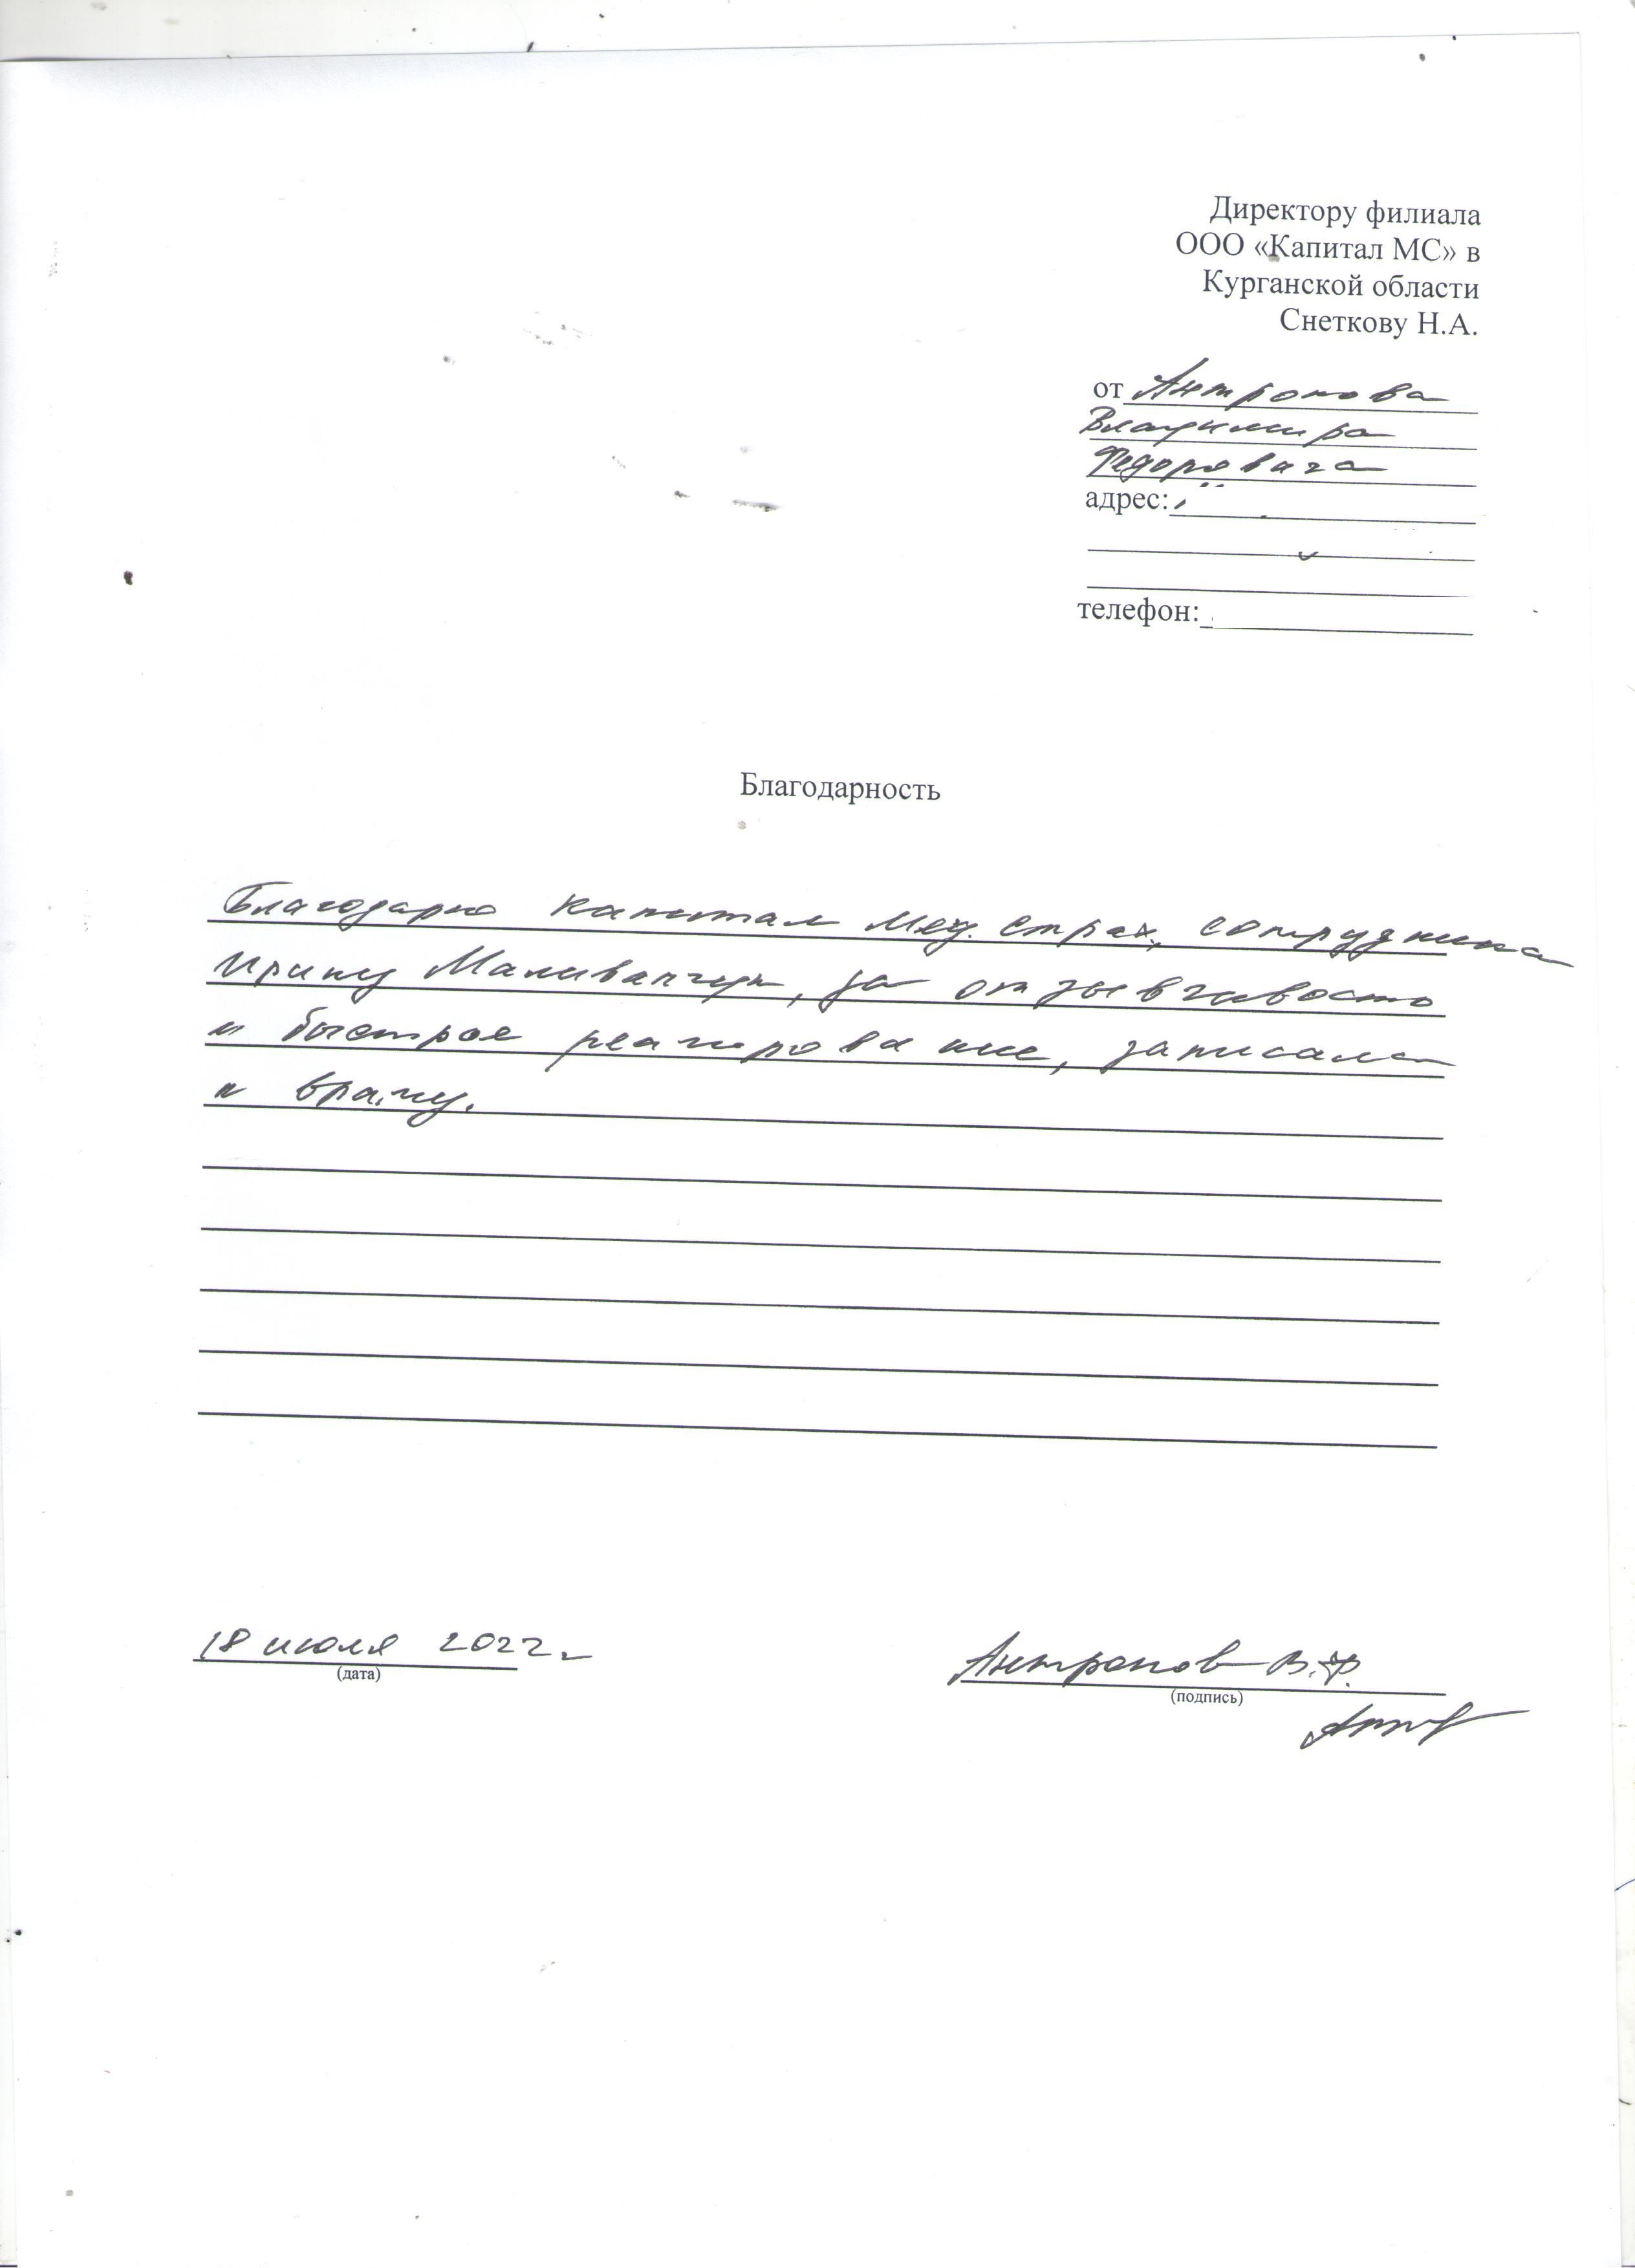 Директору филиала
ООО «Капитал МС» в
Курганской области
Снеткову Н.А.
от Антропова
Владимира
Федоровича
адрес:
телефон:
Благодарность
Благодарю капитал Мед. страх, сотрудника
Ирину за отзывчивость
и быстрое реагирование, записала
к врачу.
18 июля 2022 г.
(дата)
Антропов В.Ф.
(подпись)